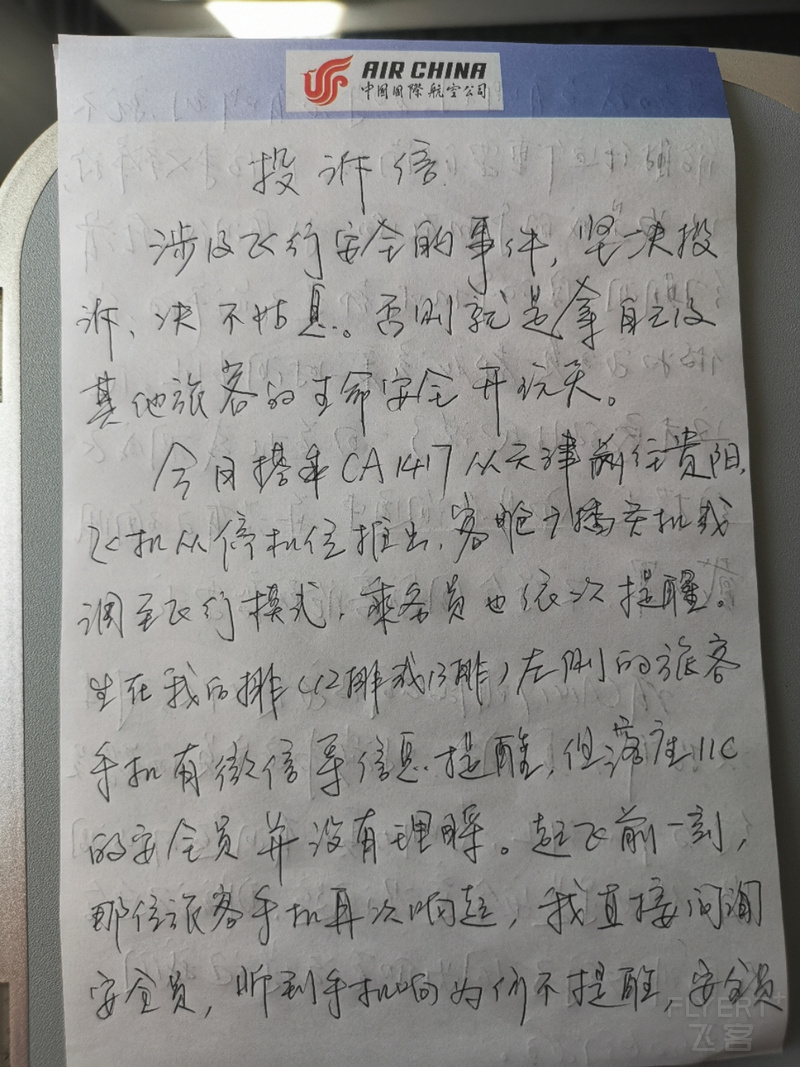 AIR CHINA
中国国際航空公司
投诉信
涉及飞行安全的事件，坚决投
诉，决不姑息。否则就是拿自己及
其他旅客的生命安全开玩笑。
今日搭乘CA1417从天津前往贵阳，
飞机从停机位推出，客舱广播关机或
调至飞行模式，乘务员也依次提醒。
坐在我后排（12排或13排）左侧的旅客
手机有微信等信息提醒，但落座11C
的安全员并没有理睬。起飞前一刻，
那位旅客手机再次响起，我直接问询
安全员，听到手机响为何不提醒，安全员
FLYERT
飞客